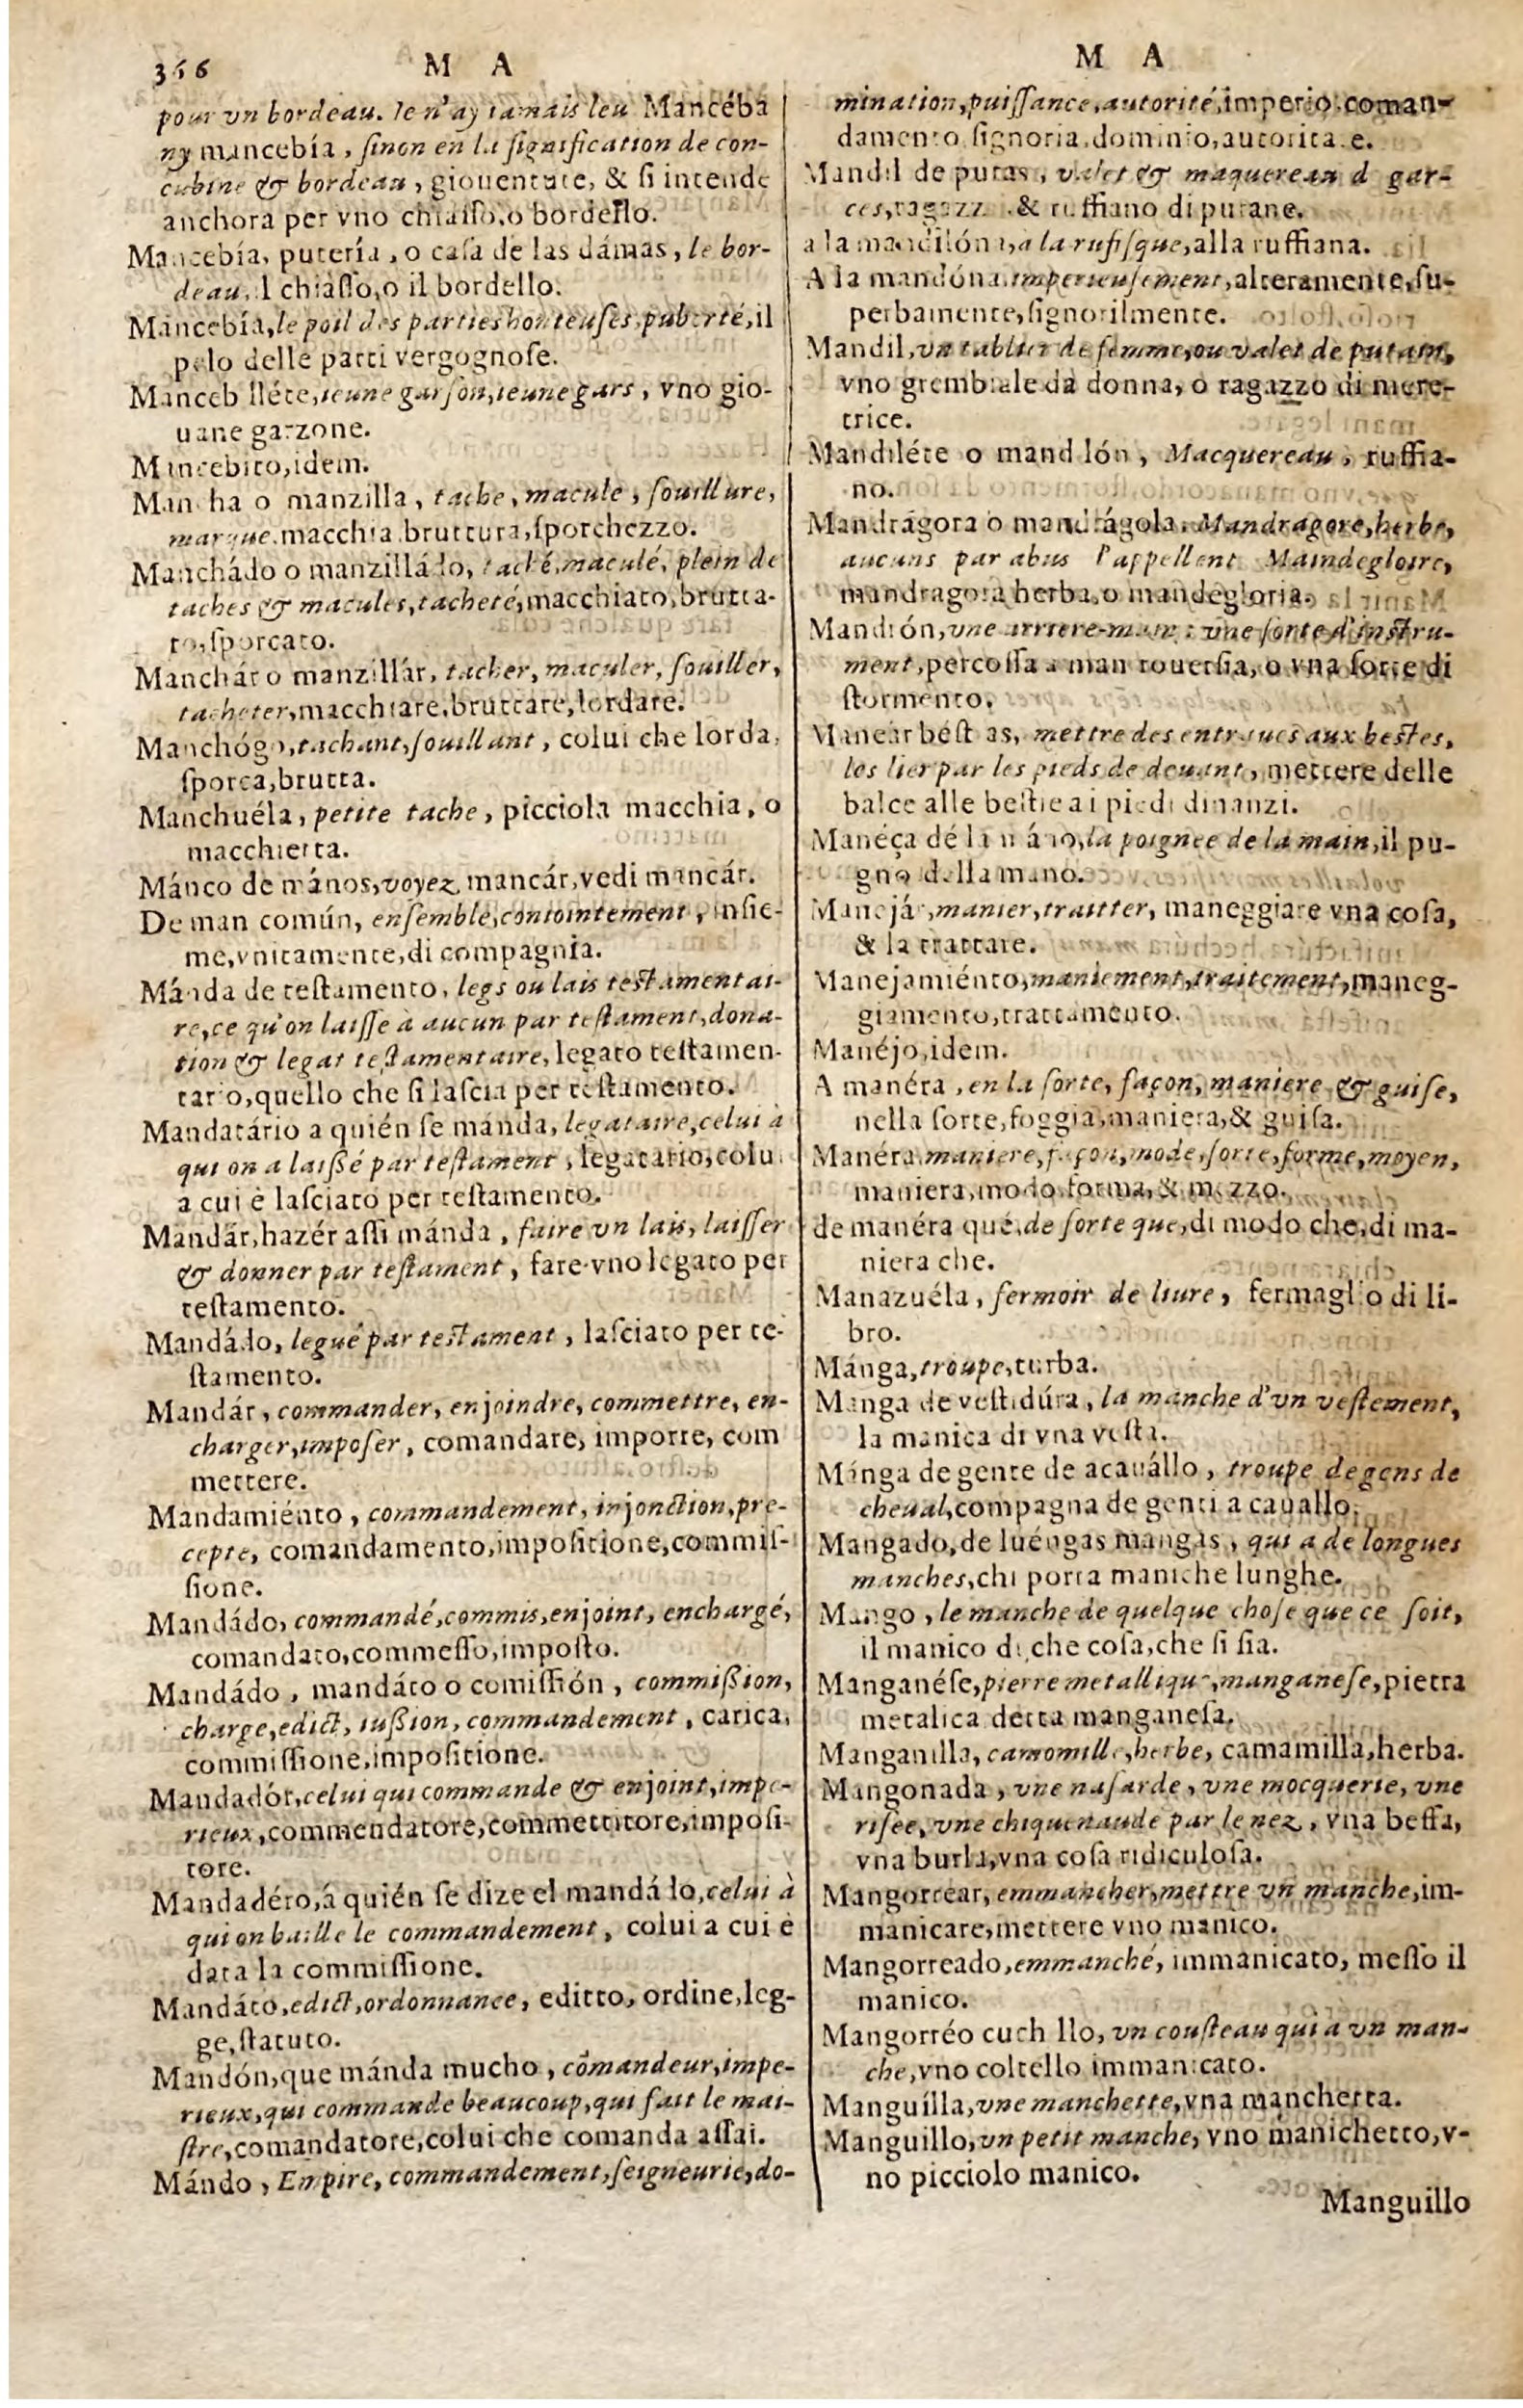 366 M A
pour vn bordeau. Ie n'ay iamais leu Mancéba
ny mancebía, ſinon en la ſignification de con-
cubine & bordeau, giouentute, & ſi intende
anchora per vno chiaſſo, o bordello.
Mancebía, putería, o caſa de las dámas, le bor-
deau, il chiaſſo, o il bordello.
Mancebía, le poil des parties honteuſes, puberté, il
pelo delle parti vergognoſe.
Manceb lléte, ieune garſon, ieune gars, vno gio-
uane garzone.
Mancebito, idem.
Mancha o manzilla, tache, macule, ſouillure,
marque, macchia, bruttura, ſporchezzo.
Manchádo o manzilládo, taché, maculé, plein de
taches & macules, tacheté, macchiato, brutta-
to, ſporcato.
Manchár o manzillár, tacher, maculer, ſouiller,
tacheter, macchiare, bruttare, lordare.
Manchógo, tachant, ſouillant, colui che lorda,
ſporca, brutta.
Manchuéla, petite tache, picciola macchia, o
macchietta.
Mánco de mános, voyez mancár, vedi mancár.
De man común, enſemble, coniointement, inſie-
me, vnitamente, di compagnia.
Mánda de teſtamento, legs ou lais teſtamentai-
re, ce qu'on laiſſe à aucun par teſtament, dona-
tion & legat teſtamentaire, legato teſtamen-
tario, quello che ſi laſcia per teſtamento.
Mandatário a quién ſe mánda, legataire, celui à
qui on a laißé par teſtament, legatario, colui
a cui è laſciato per teſtamento.
Mandár, hazér aſſi mánda, faire vn lais, laiſſer
& donner par teſtament, fare vno legato per
teſtamento.
Mandádo, legué par teſtament, laſciato per te-
ſtamento.
Mandár, commander, enjoindre, commettre, en-
charger, impoſer, comandare, imporre, com
mettere.
Mandamiénto, commandement, injonction, pre-
cepte, comandamento, impoſitione, commiſ-
ſione.
Mandádo, commandé, commis, enjoint, enchargé,
comandato, commeſſo, impoſto.
Mandádo, mandáto o comiſſión, commißion,
charge, edict, iußion, commandement, carica,
commiſſione, impoſitione.
Mandadór, celui qui commande & enjoint, impe-
rieux, commendatore, commettitore, impoſi-
tore.
Mandadéro, á quién ſe dize el mandádo, celui à
qui on baille le commandement, colui a cui è
data la commiſſione.
Mandáto, edict, ordonnance, editto, ordine, leg-
ge, ſtatuto.
Mandón, que mánda mucho, cōmandeur, impe-
rieux, qui commande beaucoup, qui fait le mai-
ſtre, comandatore, colui che comanda aſſai.
Mándo, Empire, commandement, ſeigneurie, do-
M A
mination, puiſſance, autorité, imperio, coman-
damento, ſignoria, dominio, autorita, e.
Mandil de putas, valet & maquereau d gar-
ces, ragazz & ruffiano di putane.
a la mandilóna, a la rufiſque, alla ruffiana.
A la mandóna, imperieuſement, alteramente, ſu-
perbamente, ſignorilmente.
Mandil, vn tablier de femme, ou valet de putain,
vno grembiale da donna, o ragazzo di mere-
trice.
Mandiléte o mandilón, Macquereau, ruffia-
no.
Mandrágora o mandrágola, Mandragore, herbe,
aucuns par abus l'appellent Maindegloire,
mandragora herba, o mandegloria.
Mandrón, vne arriere-main: vne ſorte d'inſtru-
ment, percoſſa a man rouerſia, o vna ſorte di
ſtormento.
Maneár béſtias, mettre des entraues aux beſtes,
les lier par les pieds de deuant, mettere delle
balce alle beſtie a i piedi dinanzi.
Manéça dé la máno, la poignee de la main, il pu-
gno della mano.
Manejár, manier, traitter, maneggiare vna coſa,
& la trattare.
Manejamiénto, maniement, traitement, maneg-
giamento, trattamento.
Manéjo, idem.
A manéra, en la ſorte, façon, maniere & guiſe,
nella ſorte, foggia, maniera, & guiſa.
Manéra, maniere, façon, mode, ſorte, forme, moyen,
maniera, modo, forma, & mezzo.
de manéra qué, de ſorte que, di modo che, di ma-
niera che.
Manazuéla, fermoir de liure, fermaglio di li-
bro.
Mánga, troupe, turba.
Manga de veſtidúra, la manche d'vn veſtement,
la manica di vna veſta.
Mánga de gente de acauállo, troupe de gens de
cheual, compagna de genti a cauallo.
Mangado, de luéngas mangas, qui a de longues
manches, chi porta maniche lunghe.
Mango, le manche de quelque choſe que ce ſoit,
il manico di che coſa, che ſi ſia.
Manganéſe, pierre metallique, manganeſe, pietra
metalica detta manganeſa.
Manganilla, camomille, herbe, camamilla, herba.
Mangonada, vne naſarde, vne mocquerie, vne
riſee, vne chiquenaude par le nez, vna beffa,
vna burla, vna coſa ridiculoſa.
Mangorrear, emmancher, mettre vn manche, im-
manicare, mettere vno manico.
Mangorreado, emmanché, immanicato, meſſo il
manico.
Mangorréo cuch llo, vn couſteau qui a vn man-
che, vno coltello immanicato.
Manguilla, vne manchette, vna manchetta.
Manguillo, vn petit manche, vno manichetto, v-
no picciolo manico.
Manguillo